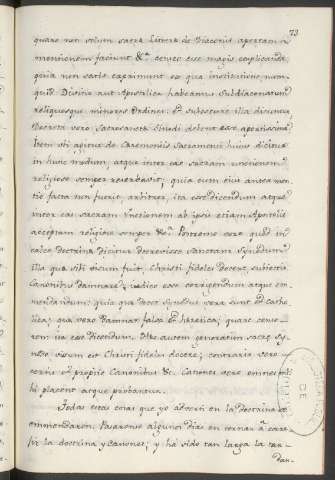 73
quare non solum sacræ Literæ de Diaconis apertam
mentionem faciunt &ª censeo esse magis explicanda
quia non satis exprimunt ea qua institutione nem-
pe Divina aut Apostolica habeamus Subdiaconatum
reliquosque minores Ordines et subscurè illa
Decreta vero Sacrosancta Sinodi debent esse apertissima.
Item ubi agitur de Cæremoniis Sacramenti huius dicitur
in hunc modum, atque inter eas sacram unctionem
religiose semper servabit; quia cum eius antea men-
tio facta non fuerit, arbitror, ita esse dicendum atque
inter eas sacram Unctionem ab ipsis etiam Apostolis
acceptam religiose semper &ª. Postremo vero quod in
calce Doctrinæ dicitur decrevisse sanctam Synodum
illa quæ sibi visum fuit, Christi fideles docere, subiectis
Canonibus damnare; iudico esse corrigendum atque em-
mendandum: quia quæ docet Synodus vera sunt et catho-
lica; quæ vero damnat falsa et hæretica; quare censu-
rem ita esse dicendum. Hæc autem generatim sacræ Sy-
nodo visum est Christi fideles docere; contraria vero
certis et propriis Canonibus &c. Canones vero omnes mi-
hi placent atque probantur.
Todas estas cosas que yo advertí en la doctrina se
emmendaron. Pasaronse algunos dias en tornar á confe-
rir la doctrina y Canones; y há sido tan larga la tar-
dan-